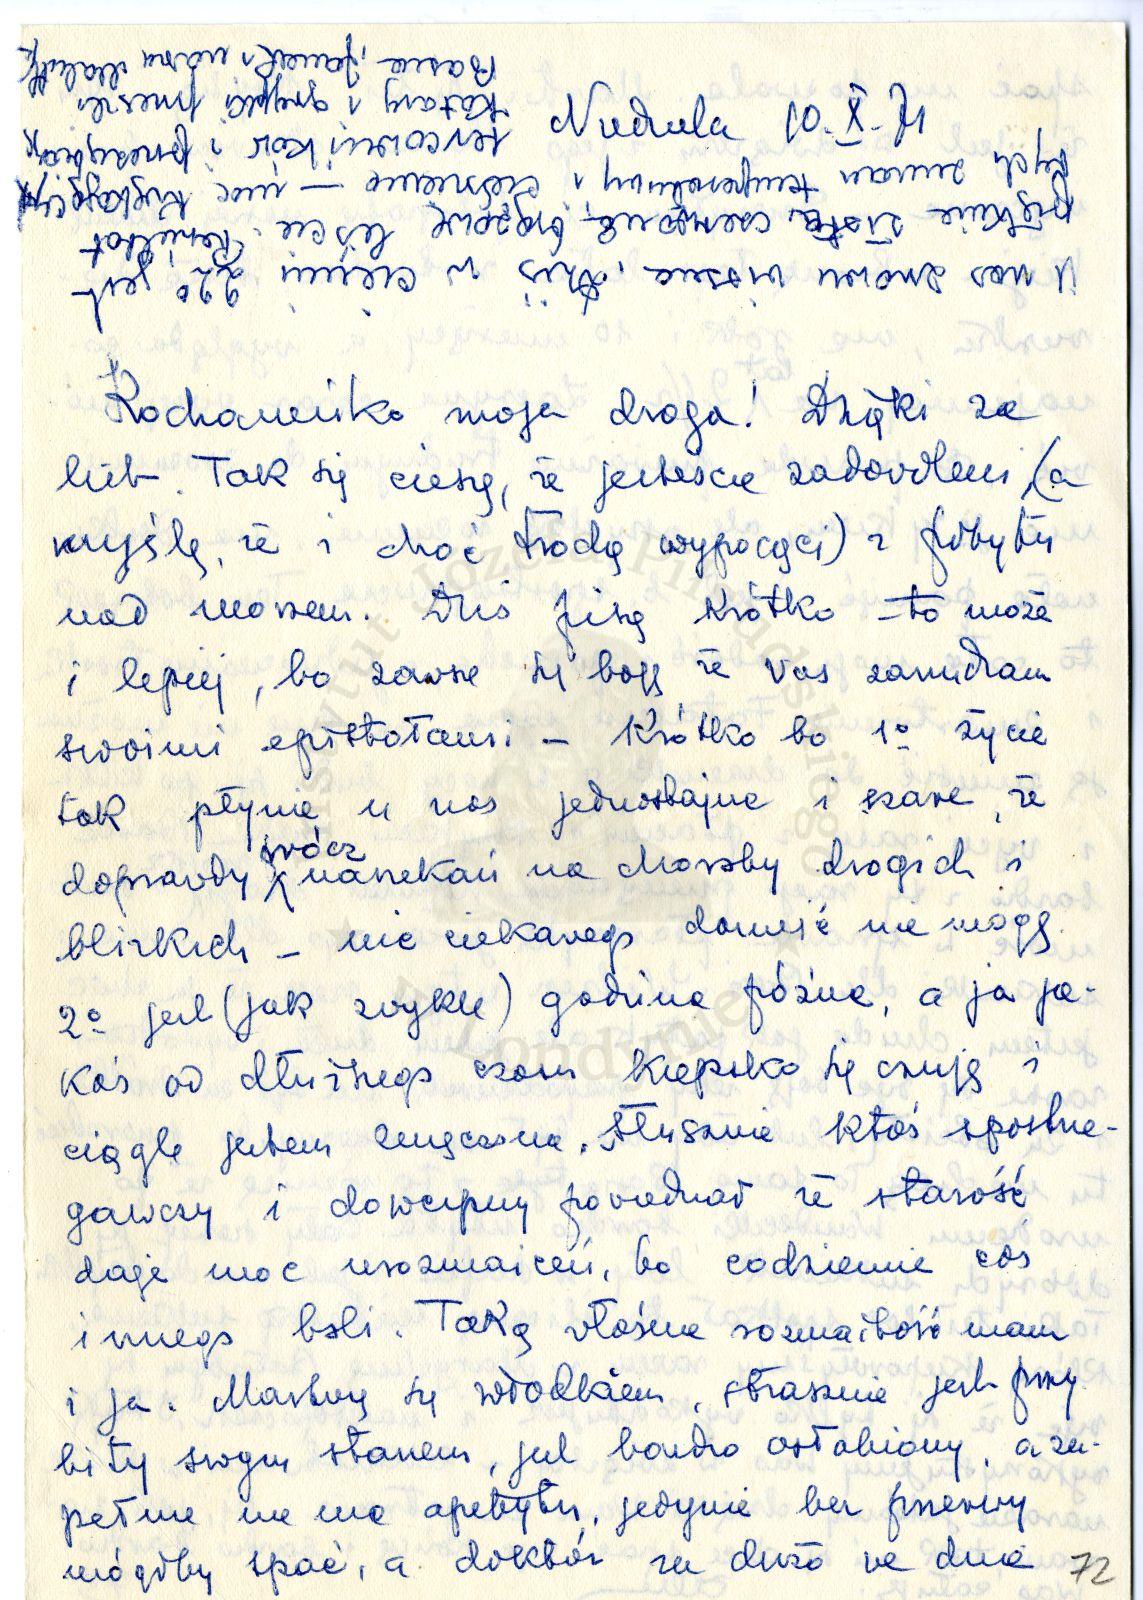 Niedziela 10.X.71
U nas znowu wiosna, dziś w cieniu 22° jest
pięknie złote, czerwone, brązowe liście. Rezultat
tych zmian temperatury i ciśnienia – moc
sercowników i
Katary i grypki
Basia, Janek i
Kochaneńko moja droga! Dzięki za
list. Tak się cieszę, że jesteście zadowoleni (a
myślę, że i choć trochę wypoczęci) z pobytu
nad morzem. Dziś piszę krótko – to może
i lepiej, bo zawsze się boję że Was zanudzam
swoimi epistołami – Krótko bo 1° życie
tak płynie u nas jednostajne i szare, że
doprawdy prócz narzekań na choroby drogich i
blizkich – nic ciekawego donieść nie mogę
2° jest (jak zwykle) godzina późna, a ja ja-
koś od dłuższego czasu kiepsko się czuję i
ciągle jestem zmęczona. Słusznie ktoś spostrze-
gawczy i dowcipny powiedział że starość
daje moc urozmaiceń, bo codziennie coś
innego boli. Taką właśnie rozmaitość mam
i ja. Martwię się Włodkiem, strasznie jest przy-
bity swym stanem, jest bardzo osłabiony, a zu-
pełnie nie ma apetytu, jedynie bez przerwy
mógłby spać, a doktór za dużo we dnie
72
Instytut Józefa Piłsudskiego
w Londynie